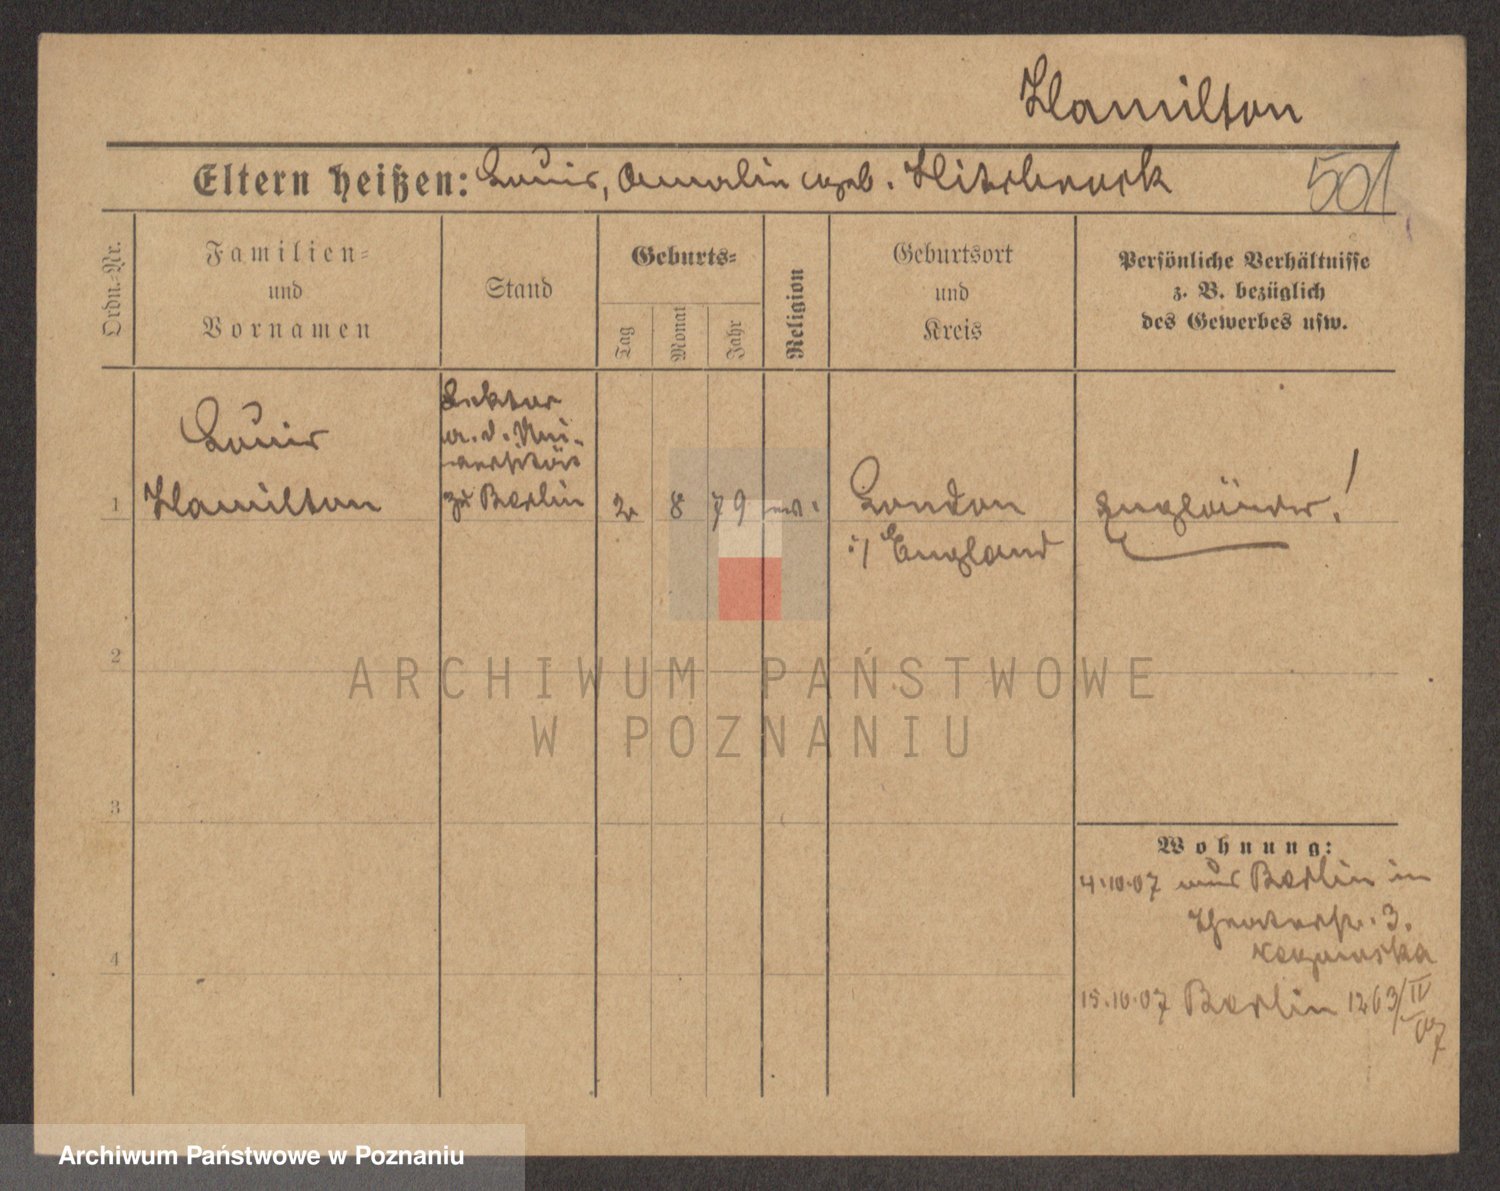 Hamilton
Eltern heißen: Louis, Amalie geb.
501
Ordn.-Nr.
Familien-
und
Vornamen
Stand
Geburts-
Tag
Monat
Jahr
Religion
Geburtsort
und
Kreis
Persönliche Verhältnisse
z. B. bezüglich
des Gewerbes usw.
1
Louis
Hamilton
Lektor
a. d. Uni-
versität
zu Berlin
2
8
79
ev.
London
i/ England
Engländer!
2
3
4
ARCHIWUM PAŃSTWOWE
W POZNANIU
Wohnung:
4.10.07 aus Berlin in
Theaterstr. 3.
15.10.07 Berlin 1263/IV
07
Archiwum Państwowe w Poznaniu